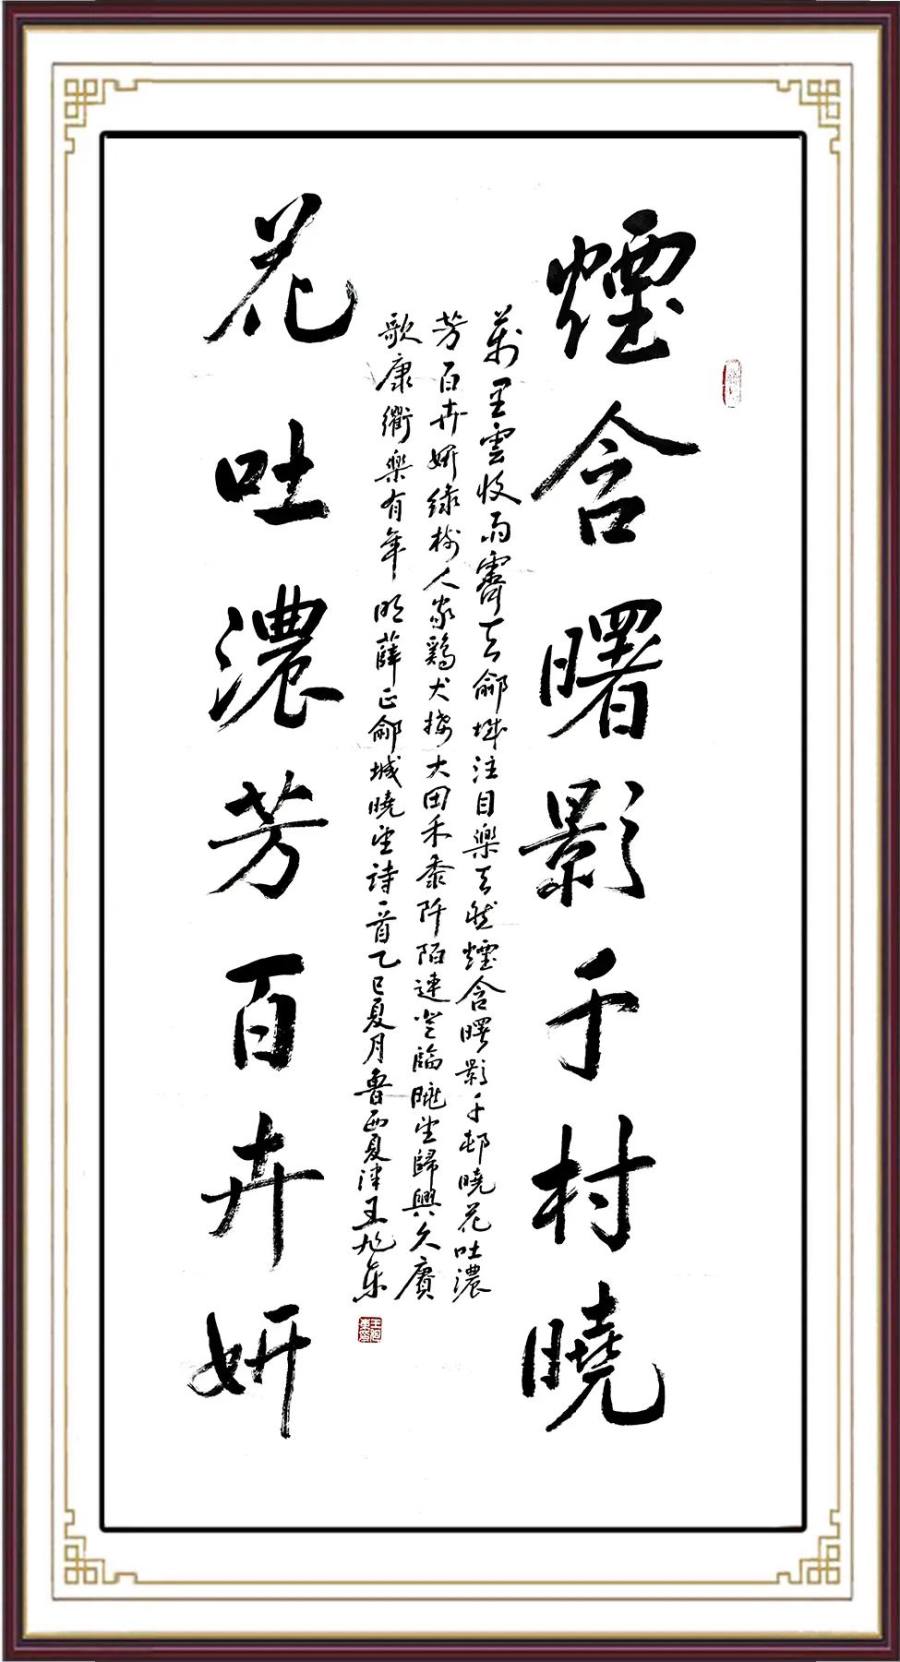 煙含曙影千村曉
萬里雲收雨霽天鄃城注目樂天然煙含曙影千邨曉花吐濃
芳百卉妍綠樹人家鷄犬接大田禾黍阡陌連登臨眺望歸興久賡
歌康衢樂有年明薛正鄃城曉望詩一首乙巳夏月魯西夏津王旭东
花吐濃芳百卉妍